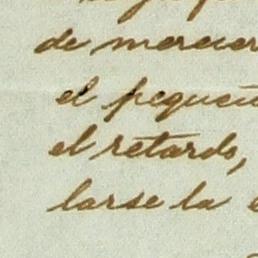 de merecer
el pequeñ
el retardo,
larse la